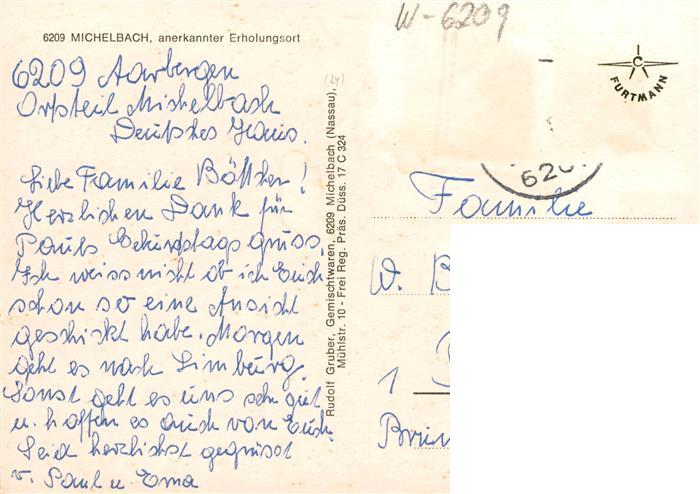 W-6209
6209 MICHELBACH, anerkannter Erholungsort
6209 Aarbergen
Ortsteil Michelbach
Deutsches Haus.
Liebe Familie Böttcher!
Herzlichen Dank für
Pauls Geburtstagsgruss.
Ich weiss nicht ob ich Euch
schon so eine Ansicht
geschickt habe. Morgen
geht es nach Limburg.
Sonst geht es uns sehr gut
u. hoffen es auch von Euch.
Seid herzlichst gegrüsst
v. Paul u. Erna
(24)
Rudolf Gruber, Gemischtwaren, 6209 Michelbach (Nassau),
Mühlstr. 10 - Frei Reg. Präs. Düss. 17 C 324
C
FURTMANN
620
Familie
W. B
1